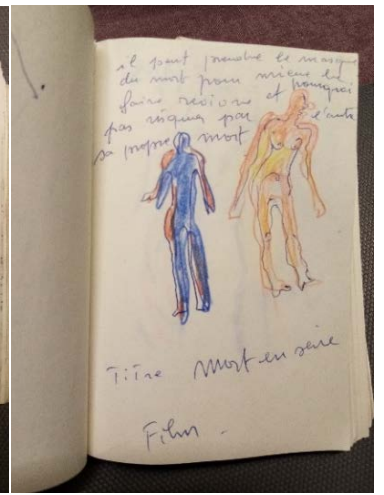 il peut prendre le masque
du mort pour mieux lui
faire revivre et pourquoi
pas risquer par l'autre
sa propre mort
Titre Mort en série
Film -